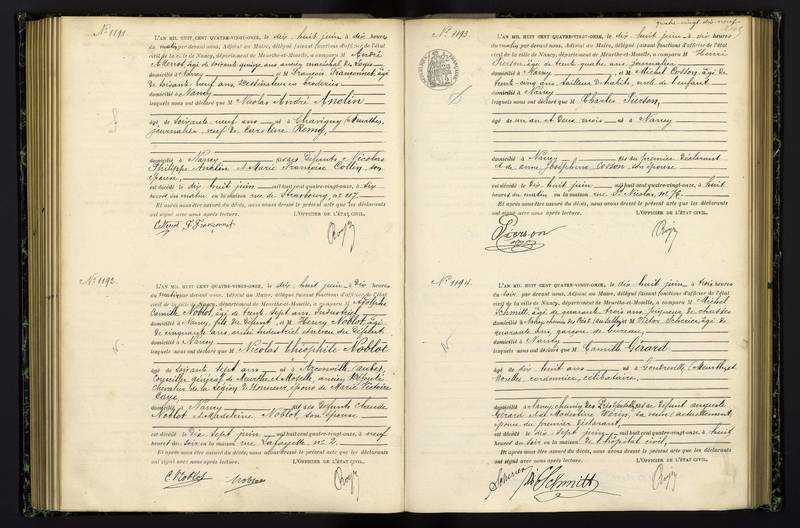 No 1191.
L'AN MIL HUIT CENT QUATRE-VINGT-ONZE, le dix huit juin à dix heures
du matin par devant nous, Adjoint au Maire, délégué faisant fonctions d'officier de l'état
civil de la ville de Nancy, département de Meurthe-et-Moselle, a comparu M André
âgé de soixante ans
domicilié à Nancy et M François Franconnet, âgé
de soixante neuf ans, en broderies
domicilié à Nancy
lesquels nous ont déclaré que M Nicolas André Anclin
âgé de Soixante neuf ans né à Chavigny (Meurthe),
journalier, veuf de Caroline Remy,
domicilié à Nancy fils des défunts Nicolas
Philippe Anclin et Marie Françoise Collin, son
épouse,
est décédé le dix huit juin mil huit cent quatre-vingt-onze, à dix
heures du matin en la maison rue de Strasbourg, no 117
Et après nous être assuré du décès, nous avons dressé le présent acte que les déclarants
ont signé avec nous après lecture. L'OFFICIER DE L'ÉTAT CIVIL.
F. Franconnet
No 1192.
L'AN MIL HUIT CENT QUATRE-VINGT-ONZE, le dix huit juin à Dix heures
du matin par devant nous, Adjoint au Maire, délégué faisant fonctions d'officier de l'état
civil de la ville de Nancy, département de Meurthe-et-Moselle, a comparu M
Camille Noblot, âgé de trente sept ans, Industriel
domicilié à Nancy, fils du défunt, et M Henry Noblot, âgé
de cinquante ans industriel du défunt
domicilié à Nancy
lesquels nous ont déclaré que M Nicolas Théophile Noblot
âgé de Soixante sept ans né à Arconville (Aube),
Conseiller général de Meurthe et Moselle, ancien Député
chevalier de la Légion d'Honneur, époux de Marie Victoire
domicilié à Nancy fils des défunts Claude
Noblot et Madeleine Noblot, son épouse
est décédé le Dix sept juin mil huit cent quatre-vingt-onze, à neuf
heures du soir en la maison rue Lafayette no 2.
Et après nous être assuré du décès, nous avons dressé le présent acte que les déclarants
ont signé avec nous après lecture. L'OFFICIER DE L'ÉTAT CIVIL.
C. Noblot Noblot
quatre vingt dix neuf
No 1193.
L'AN MIL HUIT CENT QUATRE-VINGT-ONZE, le dix huit juin à dix heures
du matin par devant nous, Adjoint au Maire, délégué faisant fonctions d'officier de l'état
civil de la ville de Nancy, département de Meurthe-et-Moselle, a comparu M Henri
Pierson, âgé de trente quatre ans, journalier
domicilié à Nancy et M Michel Cosson, âgé de
trente cinq ans, tailleur d'habits, oncle de l'enfant
domicilié à Nancy
lesquels nous ont déclaré que M Charles Pierson,
âgé de un an et Deux mois né à Nancy
domicilié à Nancy fils du premier déclarant
et de Joséphine Cosson, son épouse
est décédé le Dix huit juin mil huit cent quatre-vingt-onze, à huit
heures du matin en la maison rue St Nicolas, no 76.
Et après nous être assuré du décès, nous avons dressé le présent acte que les déclarants
ont signé avec nous après lecture. L'OFFICIER DE L'ÉTAT CIVIL.
Pierson
No 1194.
L'AN MIL HUIT CENT QUATRE-VINGT-ONZE, le dix huit juin à trois heures
du soir par devant nous, Adjoint au Maire, délégué faisant fonctions d'officier de l'état
civil de la ville de Nancy, département de Meurthe-et-Moselle, a comparu M Michel
Schmitt, âgé de quarante trois ans,
domicilié à Nancy, chemin des et M Victor Scherier, âgé de
quarante ans, garçon de bureau,
domicilié à Nancy
lesquels nous ont déclaré que M Camille Gérard
âgé de dix huit ans né à (Meurthe et
Moselle), cordonnier, célibataire,
domicilié à Nancy, chemin des fils de défunt Auguste
Gérard et de sa veuve actuellement
épouse du premier déclarant,
est décédé le Dix sept juin mil huit cent quatre-vingt-onze, à huit
heures du soir en la maison de l'hôpital civil.
Et après nous être assuré du décès, nous avons dressé le présent acte que les déclarants
ont signé avec nous après lecture. L'OFFICIER DE L'ÉTAT CIVIL.
Scherier Schmitt